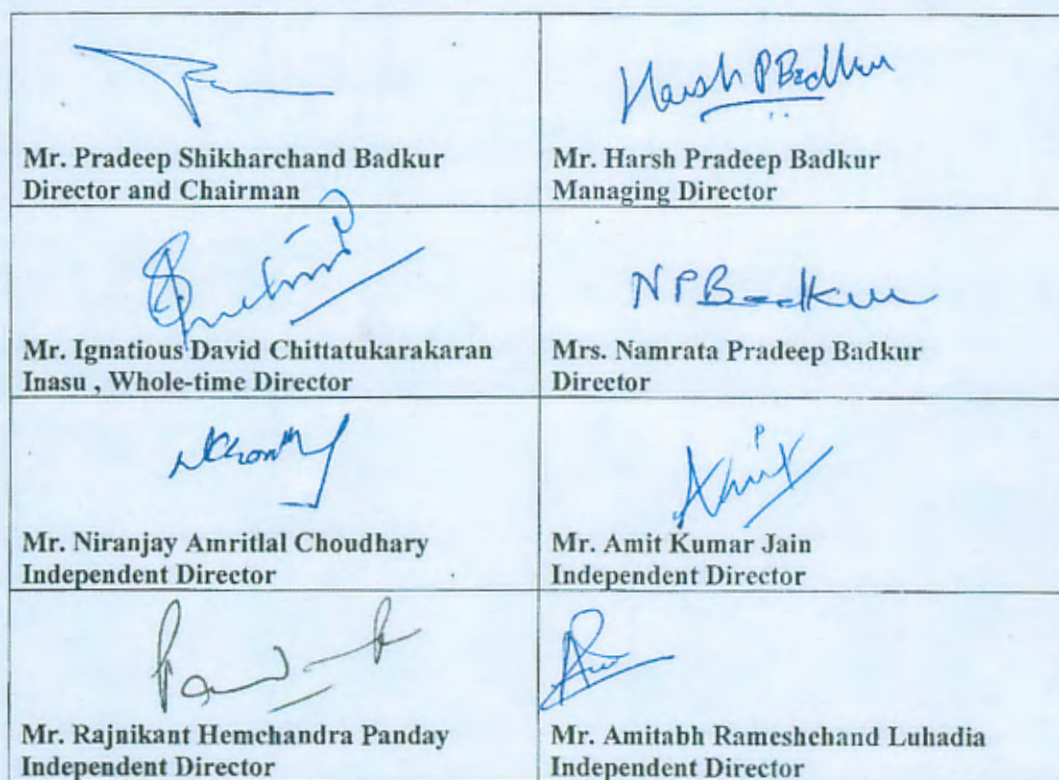 Harsh P Badkur
Mr. Pradeep Shikharchand Badkur
Director and Chairman
Mr. Harsh Pradeep Badkur
Managing Director
N P Badkur
Mr. Ignatious David Chittatukarakaran
Inasu , Whole-time Director
Mrs. Namrata Pradeep Badkur
Director
Mr. Niranjay Amritlal Choudhary
Independent Director
Amit
Mr. Amit Kumar Jain
Independent Director
Mr. Rajnikant Hemchandra Panday
Independent Director
Mr. Amitabh Rameshchand Luhadia
Independent Director